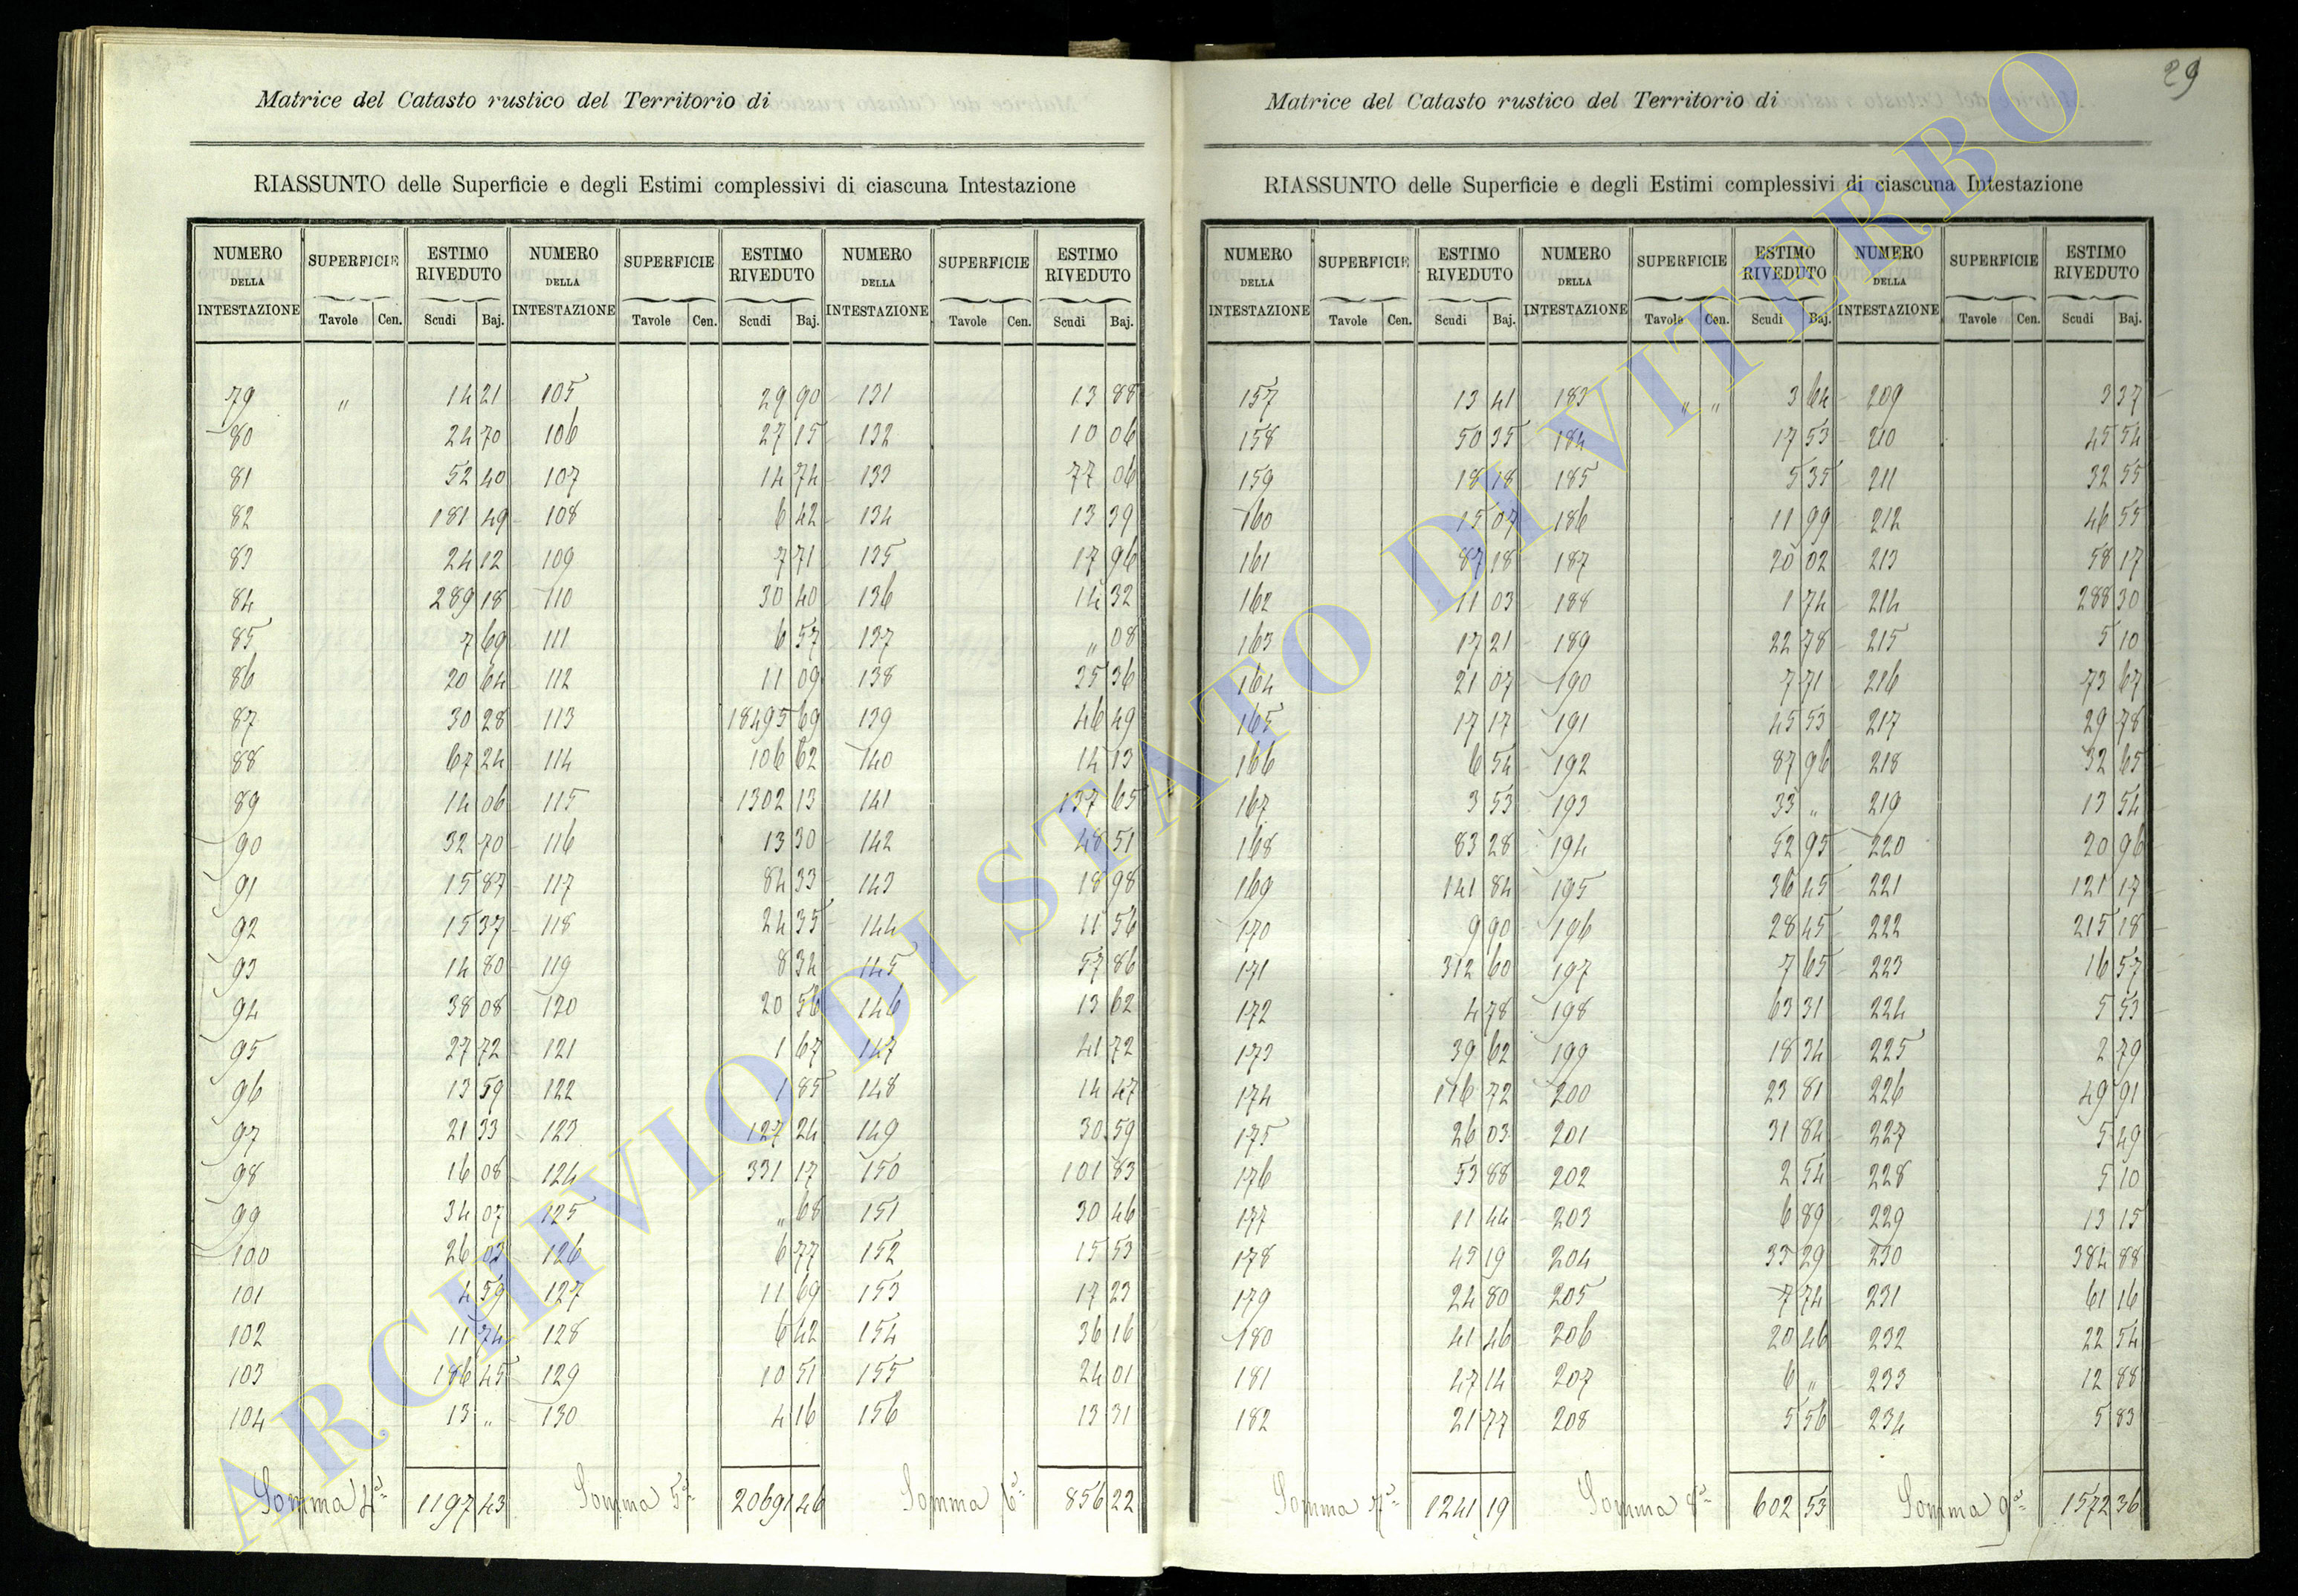 29
Matrice del Catasto rustico del Territorio di
RIASSUNTO delle Superficie e degli Estimi complessivi di ciascuna Intestazione
NUMERO DELLA INTESTAZIONE SUPERFICIE Tavole Cen. ESTIMO RIVEDUTO Scudi Baj. NUMERO DELLA INTESTAZIONE SUPERFICIE Tavole Cen. ESTIMO RIVEDUTO Scudi Baj. NUMERO DELLA INTESTAZIONE SUPERFICIE Tavole Cen. ESTIMO RIVEDUTO Scudi Baj.
79 „ 14 21 105 29 90 131 13 88
80 24 70 106 27 15 132 10 06
81 52 40 107 14 74 133 77 06
82 181 49 108 6 42 134 13 39
83 24 12 109 7 71 135 17 96
84 289 18 110 30 40 136 14 32
85 7 69 111 6 57 137 „ 08
86 20 64 112 11 09 138 35 36
87 30 28 113 18495 69 139 46 49
88 67 24 114 106 62 140 14 13
89 14 06 115 1302 13 141 137 65
90 32 70 116 13 30 142 48 51
91 15 87 117 84 33 143 18 98
92 15 37 118 24 35 144 11 56
93 14 80 119 8 34 145 57 86
94 38 08 120 20 56 146 13 62
95 27 72 121 1 67 147 41 72
96 13 59 122 1 85 148 14 47
97 21 33 123 127 24 149 30 59
98 16 08 124 331 17 150 101 83
99 34 07 125 „ 68 151 30 46
100 26 03 126 6 77 152 15 53
101 4 59 127 11 69 153 17 23
102 11 74 128 6 42 154 36 16
103 186 45 129 10 51 155 24 01
104 13 „ 130 4 16 156 13 31
Somma 4ª 1197 43 Somma 5ª 20691 46 Somma 6ª 856 22
Matrice del Catasto rustico del Territorio di
RIASSUNTO delle Superficie e degli Estimi complessivi di ciascuna Intestazione
NUMERO DELLA INTESTAZIONE SUPERFICIE Tavole Cen. ESTIMO RIVEDUTO Scudi Baj. NUMERO DELLA INTESTAZIONE SUPERFICIE Tavole Cen. ESTIMO RIVEDUTO Scudi Baj. NUMERO DELLA INTESTAZIONE SUPERFICIE Tavole Cen. ESTIMO RIVEDUTO Scudi Baj.
157 13 41 183 „ „ 3 64 209 3 37
158 50 35 184 17 53 210 45 54
159 18 18 185 5 35 211 32 55
160 15 07 186 11 99 212 46 55
161 87 18 187 20 02 213 58 17
162 11 03 188 1 74 214 288 30
163 17 21 189 22 78 215 5 10
164 21 07 190 7 71 216 73 67
165 17 17 191 45 53 217 29 78
166 6 54 192 87 96 218 32 65
167 3 53 193 33 „ 219 13 54
168 83 28 194 52 95 220 20 96
169 141 84 195 36 45 221 121 17
170 9 90 196 28 45 222 215 18
171 312 60 197 7 65 223 16 57
172 4 78 198 63 31 224 5 53
173 39 62 199 18 34 225 2 79
174 116 72 200 23 81 226 49 91
175 26 03 201 31 84 227 5 49
176 53 88 202 2 54 228 5 10
177 11 44 203 6 89 229 13 15
178 45 19 204 33 29 230 384 88
179 24 80 205 7 74 231 61 16
180 41 46 206 20 46 232 22 54
181 47 14 207 6 „ 233 12 88
182 21 77 208 5 56 234 5 83
Somma 7ª 1241 19 Somma 8ª 602 53 Somma 9ª 1572 36
ARCHIVIO DI STATO DI VITERBO